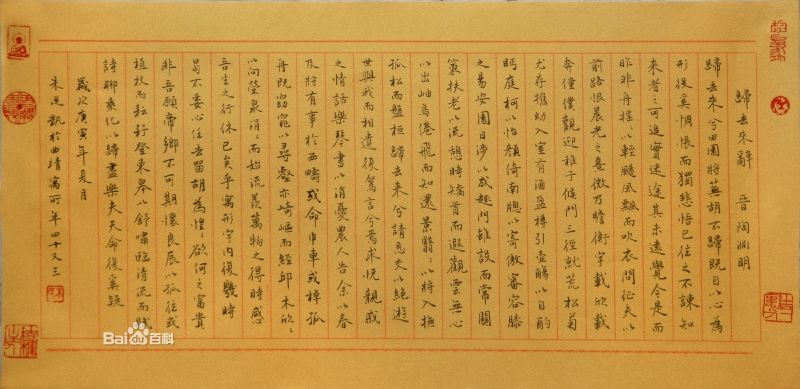 歸去來辭 晉 陶淵明
歸去來兮田園將蕪胡不歸既自以心為
形役奚惆悵而獨悲悟已往之不諫知
來者之可追實迷途其未遠覺今是而
昨非舟搖〻以輕颺風飄〻而吹衣問征夫以
前路恨晨光之熹微乃瞻衡宇載欣載
奔僮僕歡迎稚子候門三徑就荒松菊
尤存攜幼入室有酒盈樽引壺觴以自酌
眄庭柯以怡顏倚南牕以寄傲審容膝
之易安園日涉以成趣門雖設而常關
策扶老以流憩時矯首而遐觀雲無心
以出岫鳥倦飛而知還景翳〻以將入撫
孤松而盤桓歸去來兮請息交以絕遊
世與我而相遺復駕言兮焉求悅親戚
之情話樂琴書以消憂農人告余以春
及將有事於西疇或命巾車或棹孤
舟既窈窕以尋壑亦崎嶇而經邱木欣〻
以向榮泉涓〻而始流羨萬物之得時感
吾生之行休已矣乎寓形宇內復幾時
曷不委心任去留胡為惶〻欲何之富貴
非吾願帝鄉不可期懷良辰以孤往或
植杖而耘耔登東皋以舒嘯臨清流而賦
詩聊乘化以歸盡樂夫天命復奚疑
歲次庚寅年夏月
朱於曲靖寓所年四十又三
Bai百科